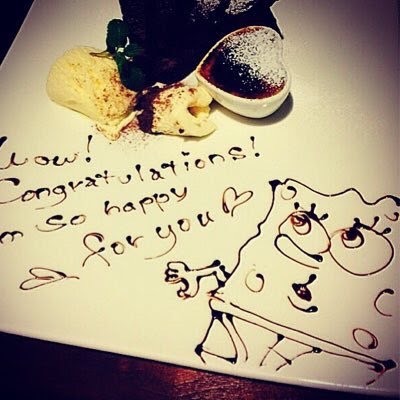 Wow!
Congratulations!
m so happy
for you♡